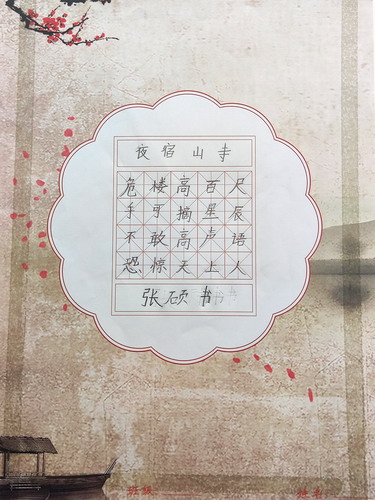 夜宿山寺
危楼高百尺
手可摘星辰
不敢高声语
恐惊天上人
张硕书
班级
姓名